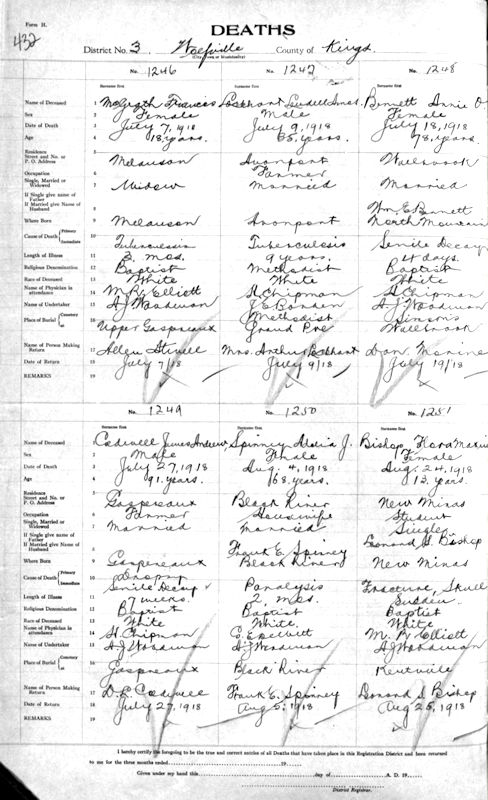 Form H.
432
DEATHS
District No. 3 Wolfville County of Kings
(City, Town or Municipality)
No. 1246 No. 1247 No. 1248
Surname first Surname first Surname first
Name of Deceased 1 Frances Lockhart Annie O
Sex 2 Female Male Female
Date of Death 3 July 7, 1918 July 9, 1918 July 18, 1918
Age 4 18 years. 65 years. 78 years.
Residence
Street and No. or 5 Melanson Avonport Wallbrook
P. O. Address
Occupation 6 Farmer
Single, Married or 7 Widow Married Married
Widowed
If Single give name of
Father
If Married give Name of 8 Wm. E. Bennett
Husband
Where Born 9 Melanson Avonport North Mountain
Cause of Death Primary 10 Tuberculosis Tuberculosis Senile Decay
Immediate
Length of Illness 11 3 mos. 9 years. 4 days.
Religious Denomination 12 Baptist Methodist Baptist
Race of Deceased 13 White White White
Name of Physician in 14 M. R. Elliott H. Chipman H. Chipman
attendance
Name of Undertaker 15 A J Woodman Borden A J Woodman
Place of Burial Cemetery 16 Methodist
at Upper Gaspereaux Grand Pre Wallbrook
Name of Person Making 17 Allen Mrs. Arthur Lockhart Don
Return
Date of Return 18 July 7/18 July 9/18 July 19/18
REMARKS 19
No. 1249 No. 1250 No. 1251
Surname first Surname first Surname first
Name of Deceased 1 James Andrew Spinney J. Bishop
Sex 2 Male Female Female
Date of Death 3 July 27, 1918 Aug. 4, 1918 Aug. 24, 1918
Age 4 91 years. 68 years. 13 years.
Residence
Street and No. or 5 Gaspereaux Black River New Minas
P. O. Address
Occupation 6 Farmer Housewife Student
Single, Married or 7 Married Married Single
Widowed
If Single give name of
Father
If Married give Name of 8 Frank E. Spinney S. Bishop
Husband
Where Born 9 Gaspereaux Black River New Minas
Cause of Death Primary 10 Dropsy
Immediate Senile Decay Paralysis Fracture, Skull
Length of Illness 11 7 weeks. 2 mos. Sudden
Religious Denomination 12 Baptist Baptist Baptist
Race of Deceased 13 White White. White
Name of Physician in 14 H. Chipman M. R. Elliott
attendance
Name of Undertaker 15 A J Woodman A J Woodman A J Woodman
Place of Burial Cemetery 16
at Gaspereaux Black River Kentville
Name of Person Making 17 Frank E. Spinney S Bishop
Return
Date of Return 18 July 27, 1918 Aug 5, 1918 Aug 25, 1918
REMARKS 19
I hereby certify the foregoing to be the true and correct entries of all Deaths that have taken place in this Registration District and been returned
to me for the three months ended 19
Given under my hand this day of A. D. 19
District Registrar.